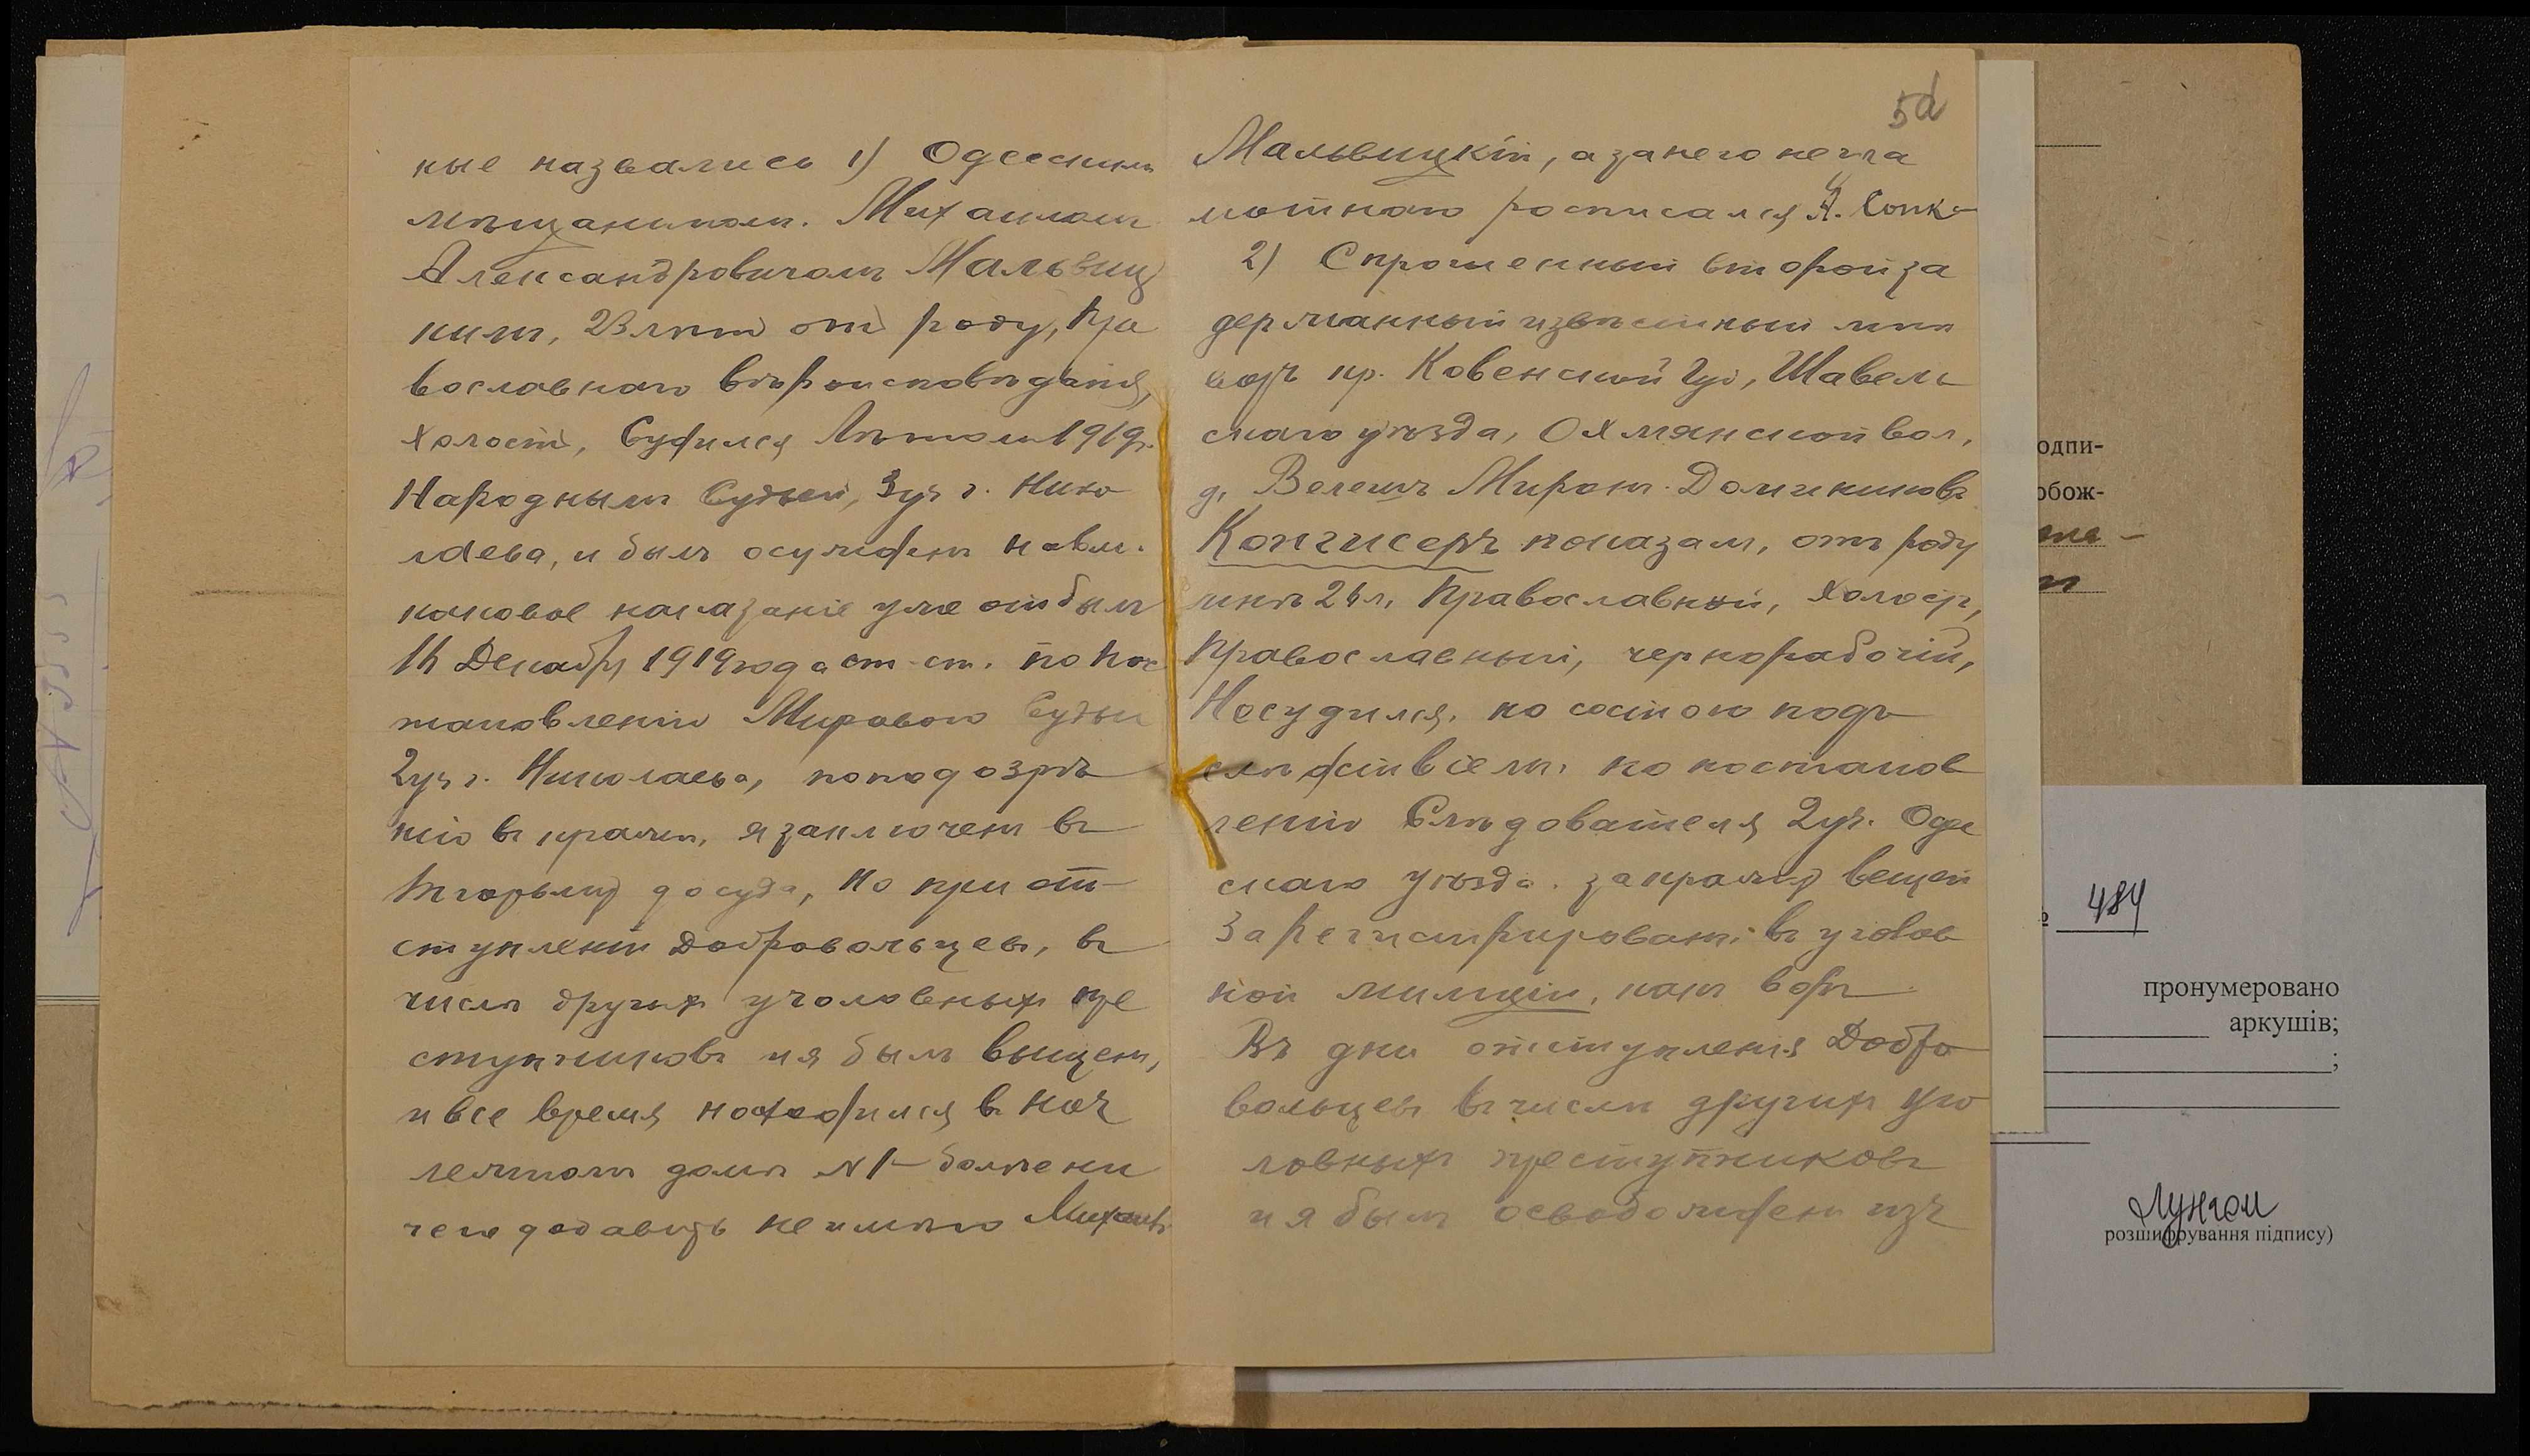 ные назвались 1) Одесским
мѣщанином. Михаилом
Александровичом Мальвиц
ким, 23 лѣт от роду, Пра
вославнаго вѣроисповѣданія,
холост, Судился Лѣтом 1919 г.
Народным Судьей, 3 уч. г. Нико
лаева, и был осужден
наказаніе уже отбыл
16 Декабря 1919 года ст. ст. по пос
тановленію Мирового Судьи
2 уч. г. Николаева, по подозрѣ
нію в кражѣ, я заключен в
тюрьму до суда, но при от-
ступленіи Добровольцев, в
числѣ других уголовных пре
ступников и я был выпущен,
и все время находился в ноч
лежном домѣ № 1 - болѣе ни
чего добавить не имѣю Михаил
5d
Мальвицкій, а за него негра
мотнаго росписался
2) Спрошенный второй за
держанный извѣстный мнѣ
вор кр. Ковенской Губ, Шавель
скаго уѣзда, Охмянской вол,
д. Мирон Домиников
Конгисеръ показал, отъ роду
мнѣ 26 л, Православный, холост,
Православный, чернорабочій,
Несудился, но состою подъ
слѣдствіем, по постанов
ленію Слѣдователя 2 уч. Одес
скаго уѣзда. за кражу вещей
Зарегистрирован в уголов
ной милиціи, как вор
Въ дни отступленія Добро
вольцев в числѣ других уго
ловных преступников
и я был освобожден изъ
одпи-
обож-
484
пронумеровано
аркушів;
;
Лунгол
розшифрування підпису)